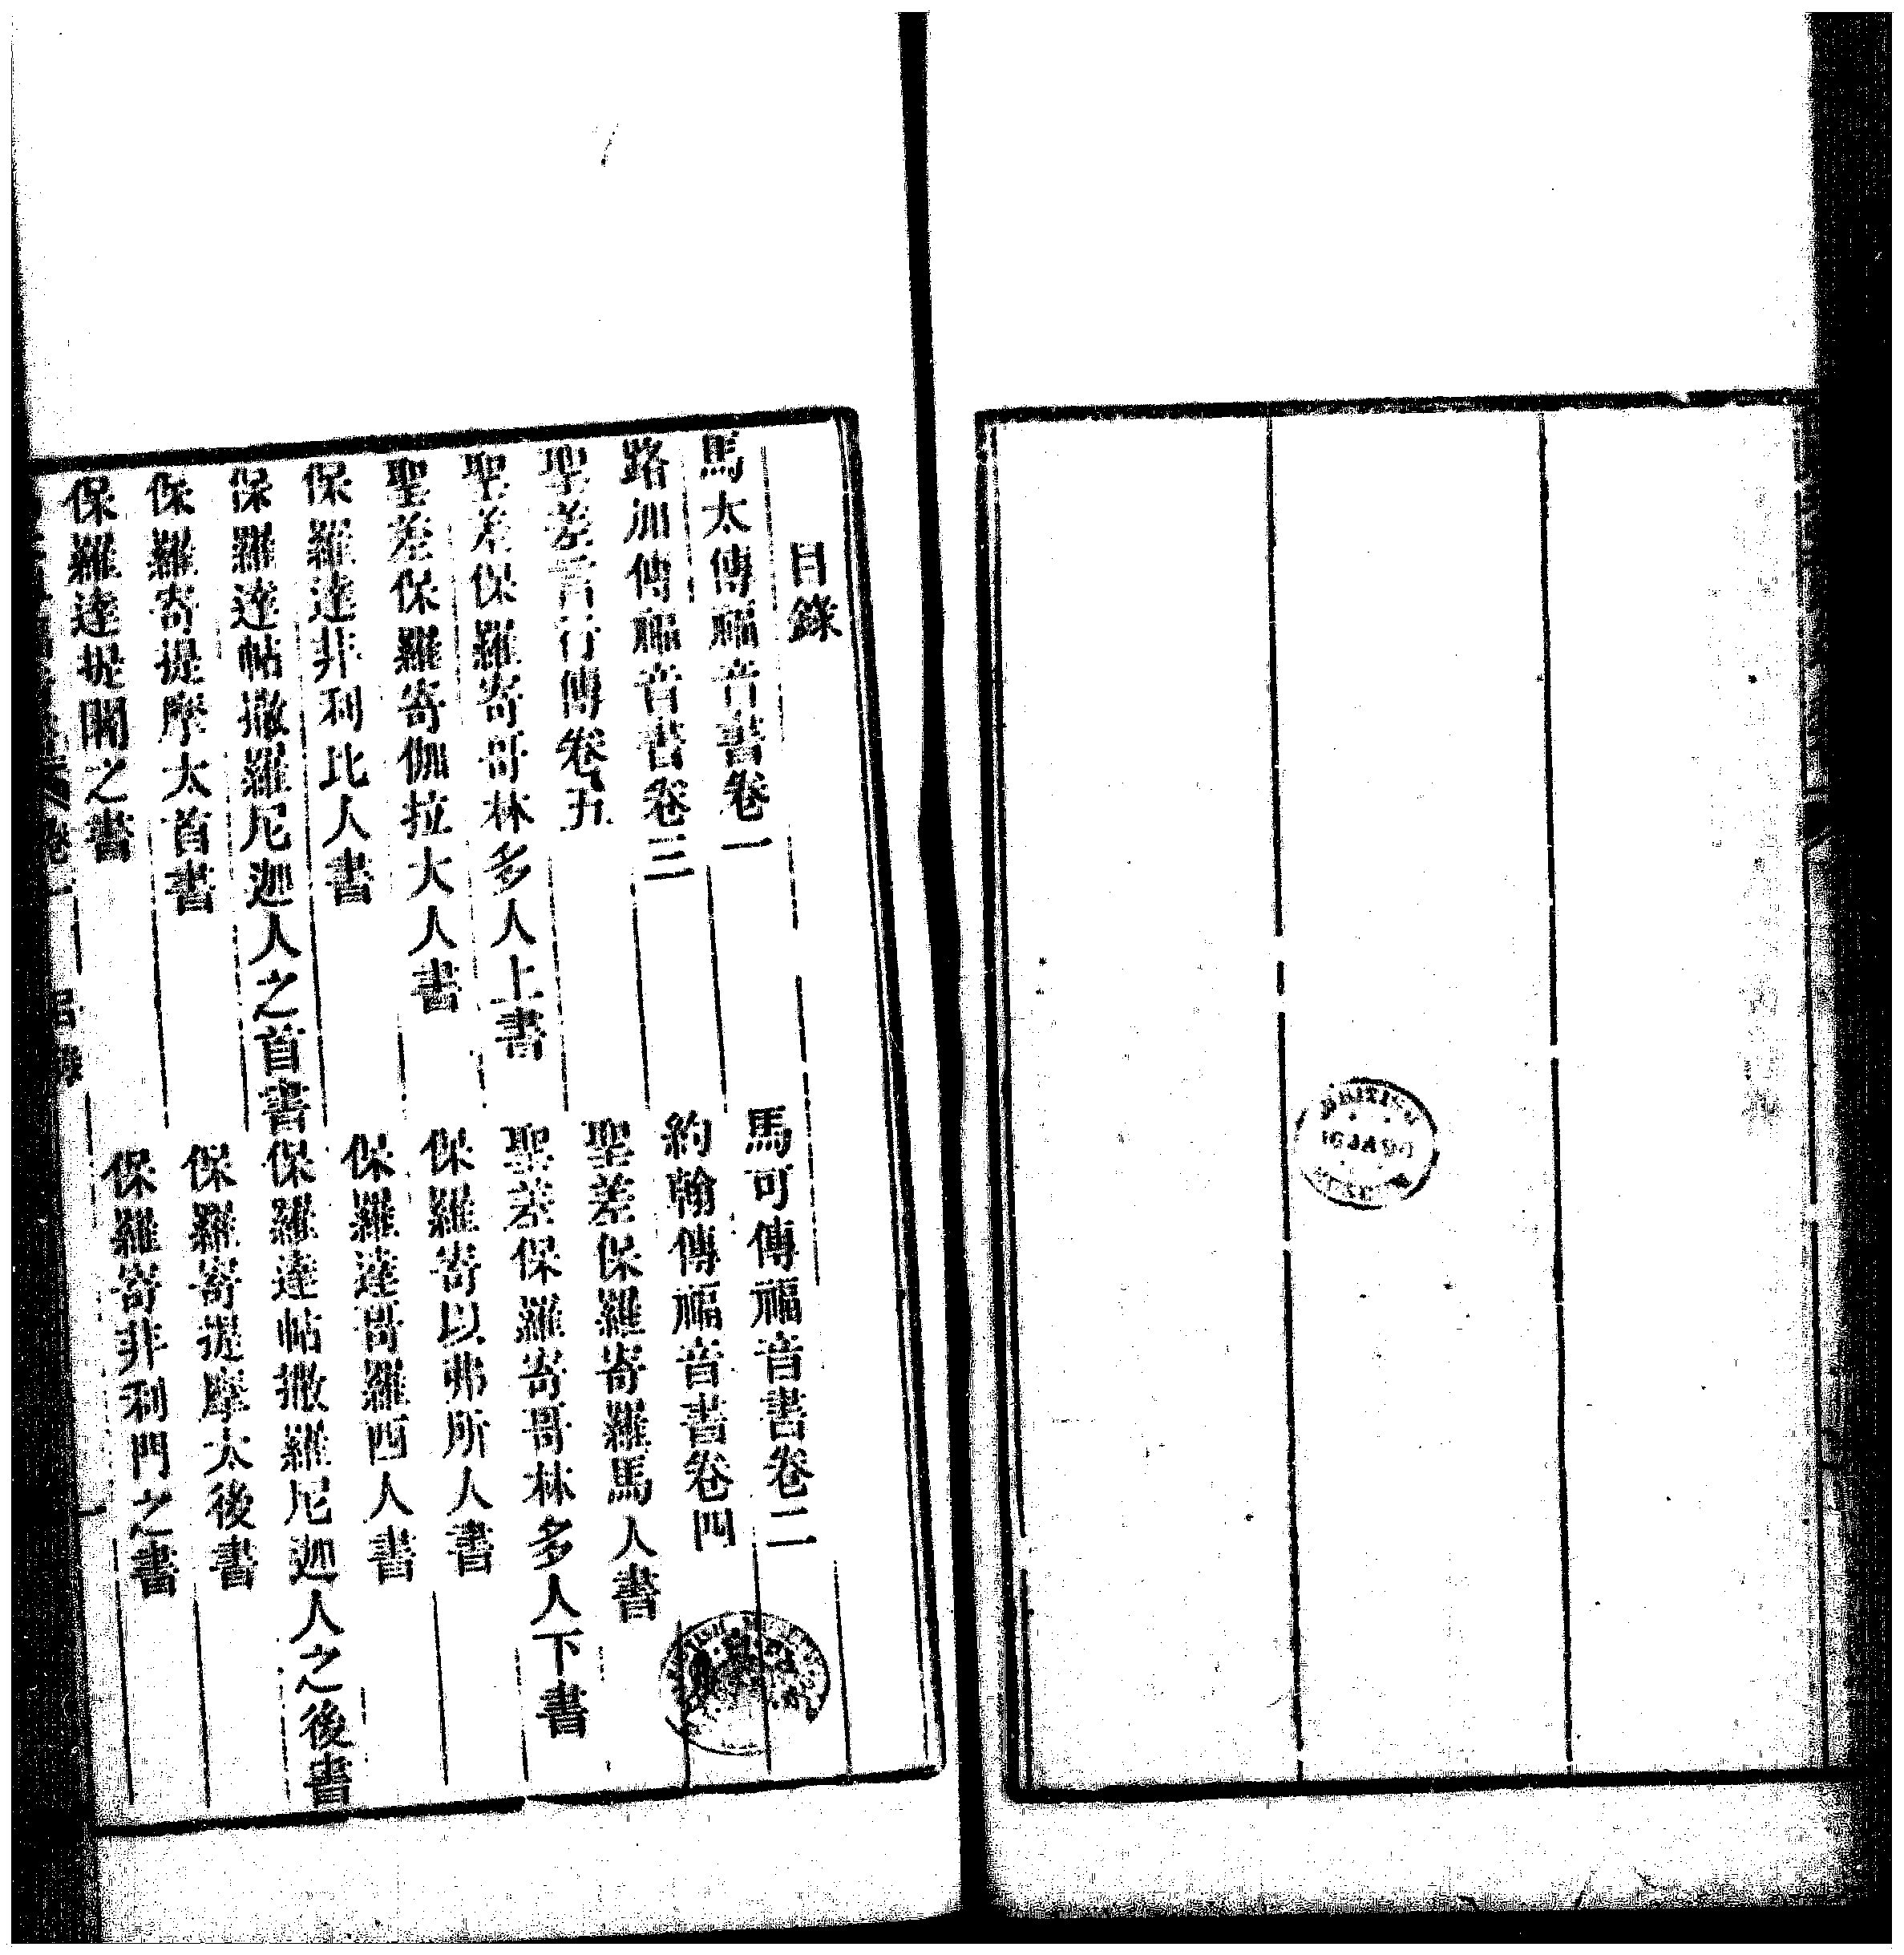 目錄
馬太傳福音書卷一
馬可傳福音書卷二
路加傳福音書卷三
約翰傳福音書卷四
聖差言行傳卷五
聖差保羅寄羅馬人書
聖差保羅寄哥林多人上書
聖差保羅寄哥林多人下書
聖差保羅寄伽拉大人書
保羅寄以弗所人書
保羅達非利比人書
保羅達哥羅西人書
保羅達帖撒羅尼迦人之首書
保羅達帖撒羅尼迦人之後書
保羅寄提摩太首書
保羅寄提摩太後書
保羅達提閘之書
保羅寄非利門之書
卷一 目錄 一
BRITISH
MUSEUM